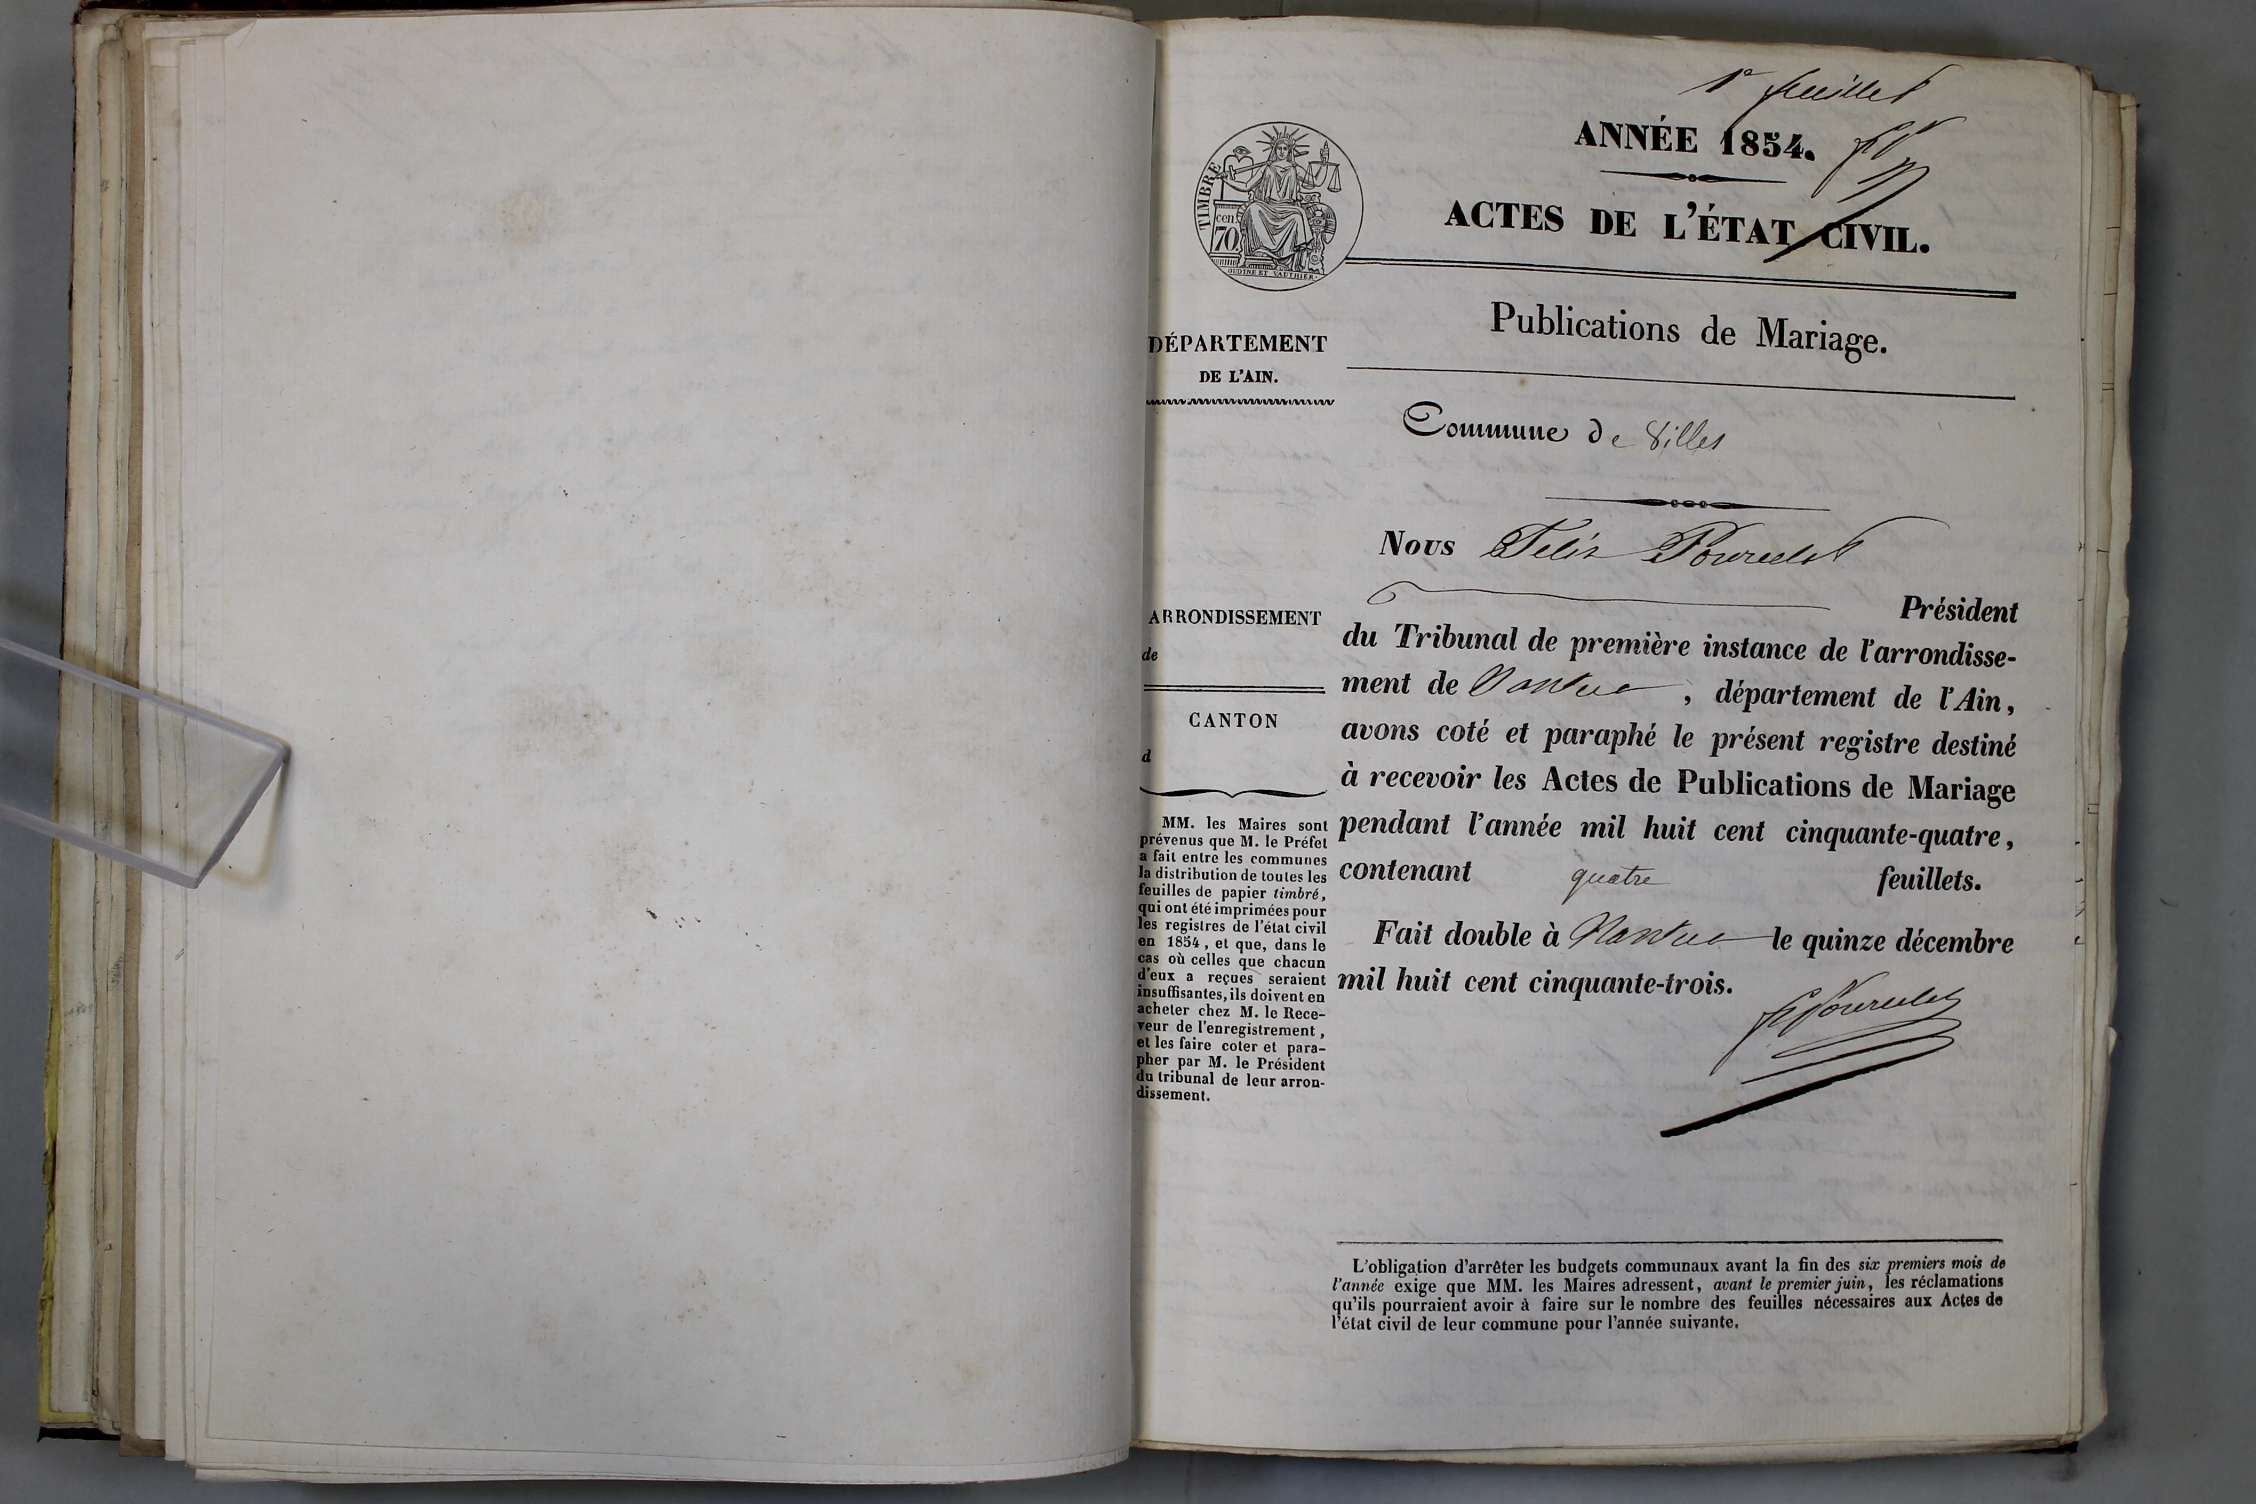 1e feuillet
ANNÉE 1854.
ACTES DE L'ÉTAT CIVIL.
TIMBRE
cen
70
OUDINE ET VAUTHIER
Publications de Mariage.
DÉPARTEMENT
DE L'AIN.
Commune de Villes
Nous Félix Pourcelot
Président
du Tribunal de première instance de l'arrondisse-
ment de Nantua, département de l'Ain,
avons coté et paraphé le présent registre destiné
à recevoir les Actes de Publications de Mariage
pendant l'année mil huit cent cinquante-quatre,
contenant quatre feuillets.
Fait double à Nantua le quinze décembre
mil huit cent cinquante-trois.
ARRONDISSEMENT
de
CANTON
d
MM. les Maires sont
prévenus que M. le Préfet
a fait entre les communes
la distribution de toutes les
feuilles de papier timbré,
qui ont été imprimées pour
les registres de l'état civil
en 1854, et que, dans le
cas où celles que chacun
d'eux a reçues seraient
insuffisantes, ils doivent en
acheter chez M. le Rece-
veur de l'enregistrement,
et les faire coter et para-
pher par M. le Président
du tribunal de leur arron-
dissement.
L'obligation d'arrêter les budgets communaux avant la fin des six premiers mois de
l'année exige que MM. les Maires adressent, avant le premier juin, les réclamations
qu'ils pourraient avoir à faire sur le nombre des feuilles nécessaires aux Actes de
l'état civil de leur commune pour l'année suivante.